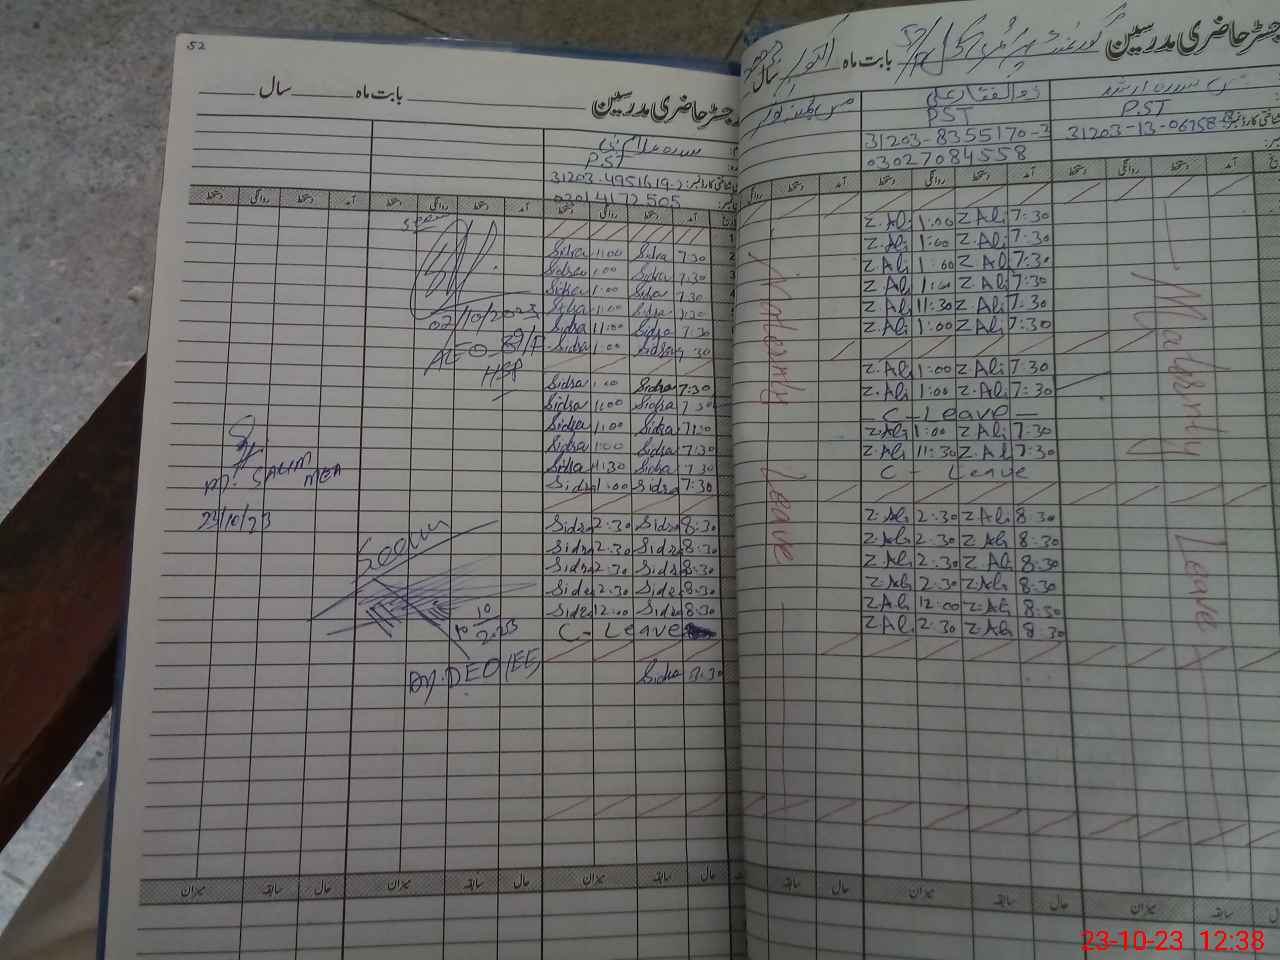 52
رجسٹر حاضری مدرسین بابت ماہ سال
PST
31203-4951619-2
03014172505
آمد دستخط روانگی دستخط آمد دستخط روانگی دستخط
Seen
Sidra 1:00 Sidra 7:30
Sidra 1:00 Sidra 7:30
Sidra 1:00 Sidra 7:30
Sidra 1:00 Sidra 7:30
02/10/2023
Sidra 11:00 Sidra 7:30
Sidra 1:00 Sidra 7:30
Sidra 1:00 Sidra 7:30
Sidra 1:00 Sidra 7:30
Sidra 1:00 Sidra 7:30
Sidra 1:00 Sidra 7:30
Sidra 11:30 Sidra 7:30
Sidra 1:00 Sidra 7:30
SALIM
MEA
23/10/23
Seen
Sidra 2:30 Sidra 8:30
Sidra 2:30 Sidra 8:30
Sidra 2:30 Sidra 8:30
Sidra 2:30 Sidra 8:30
Sidra 12:00 Sidra 8:30
C - Leave
10
2023
Dy. DEO (EE)
Sidra 8:30
حال سابقہ میزان حال سابقہ میزان حال سابقہ میزان
رجسٹر حاضری مدرسین بابت ماہ اکتوبر سال
PST
31203-13-06758-8
ذوالفقار علی
PST
31203-8355170-3
03027084558
آمد دستخط روانگی دستخط آمد دستخط روانگی
Z.Ali 1:00 Z.Ali 7:30
Z.Ali 1:00 Z.Ali 7:30
Z.Ali 1:00 Z.Ali 7:30
Z.Ali 1:00 Z.Ali 7:30
Z.Ali 11:30 Z.Ali 7:30
Z.Ali 1:00 Z.Ali 7:30
Z.Ali 1:00 Z.Ali 7:30
Z.Ali 1:00 Z.Ali 7:30
— C - Leave —
Z.Ali 1:00 Z.Ali 7:30
Z.Ali 11:30 Z.Ali 7:30
C - Leave
Z.Ali 2:30 Z.Ali 8:30
Z.Ali 2:30 Z.Ali 8:30
Z.Ali 2:30 Z.Ali 8:30
Z.Ali 2:30 Z.Ali 8:30
Z.Ali 12:00 Z.Ali 8:30
Z.Ali 2:30 Z.Ali 8:30
Maternty Leave
Maternty Leave
حال سابقہ میزان حال سابقہ میزان
23-10-23 12:38